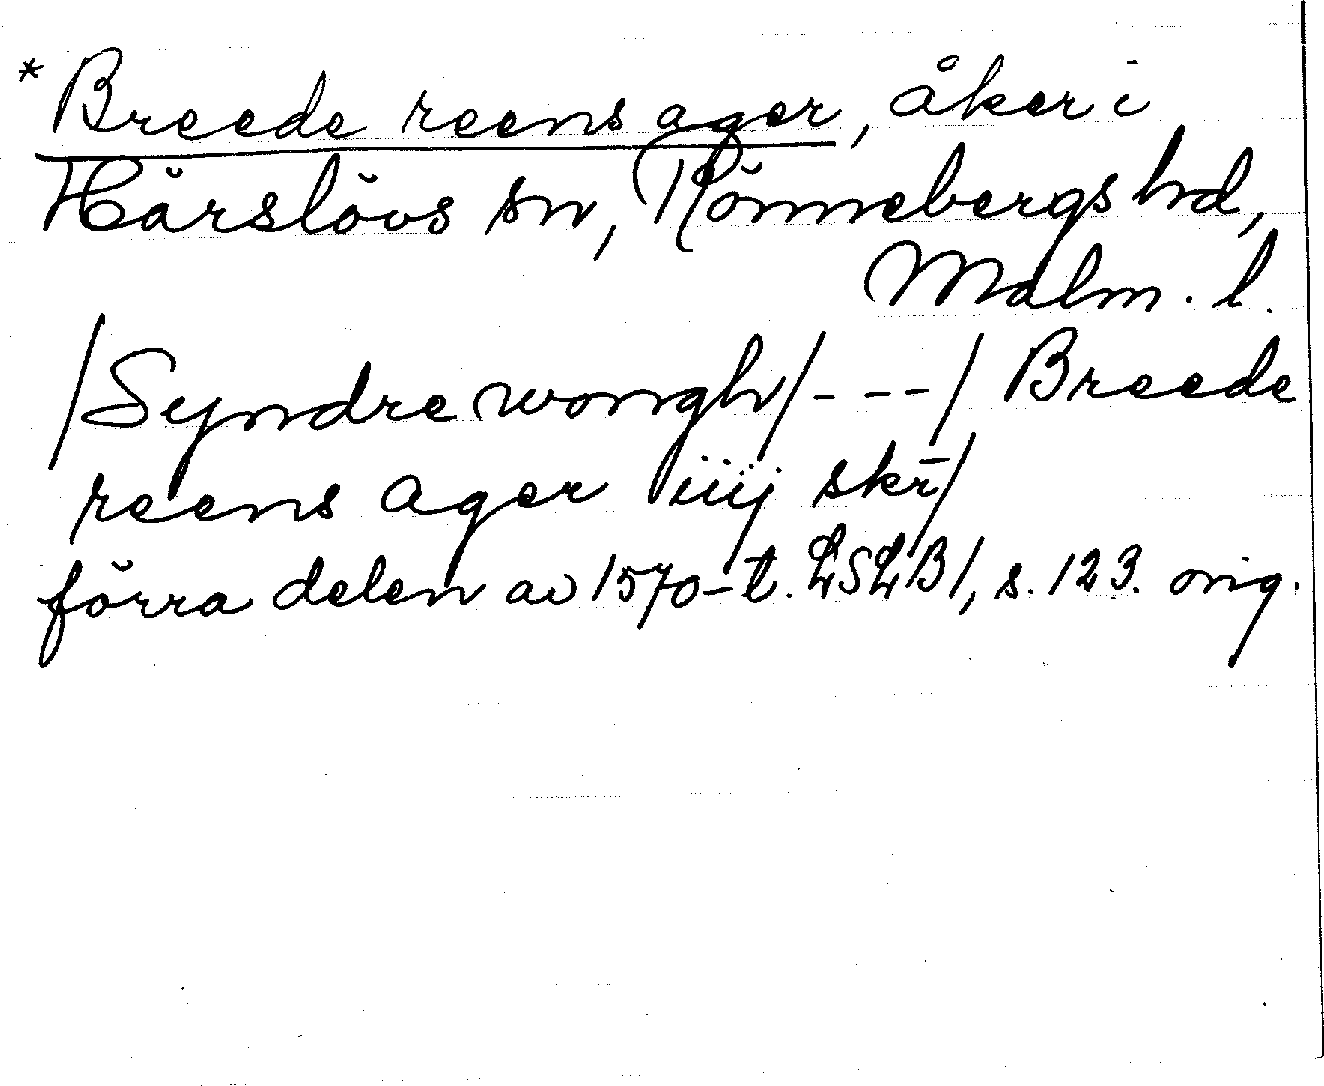 * Breede reens ager, åker i
Härslövs sn, Rönnebergs hd,
Malm. l.
/Syndre wongh/ - - - / Breede
reens ager iiij skr̄/
förra delen av 1570-t. LSLB1, s. 123. orig.